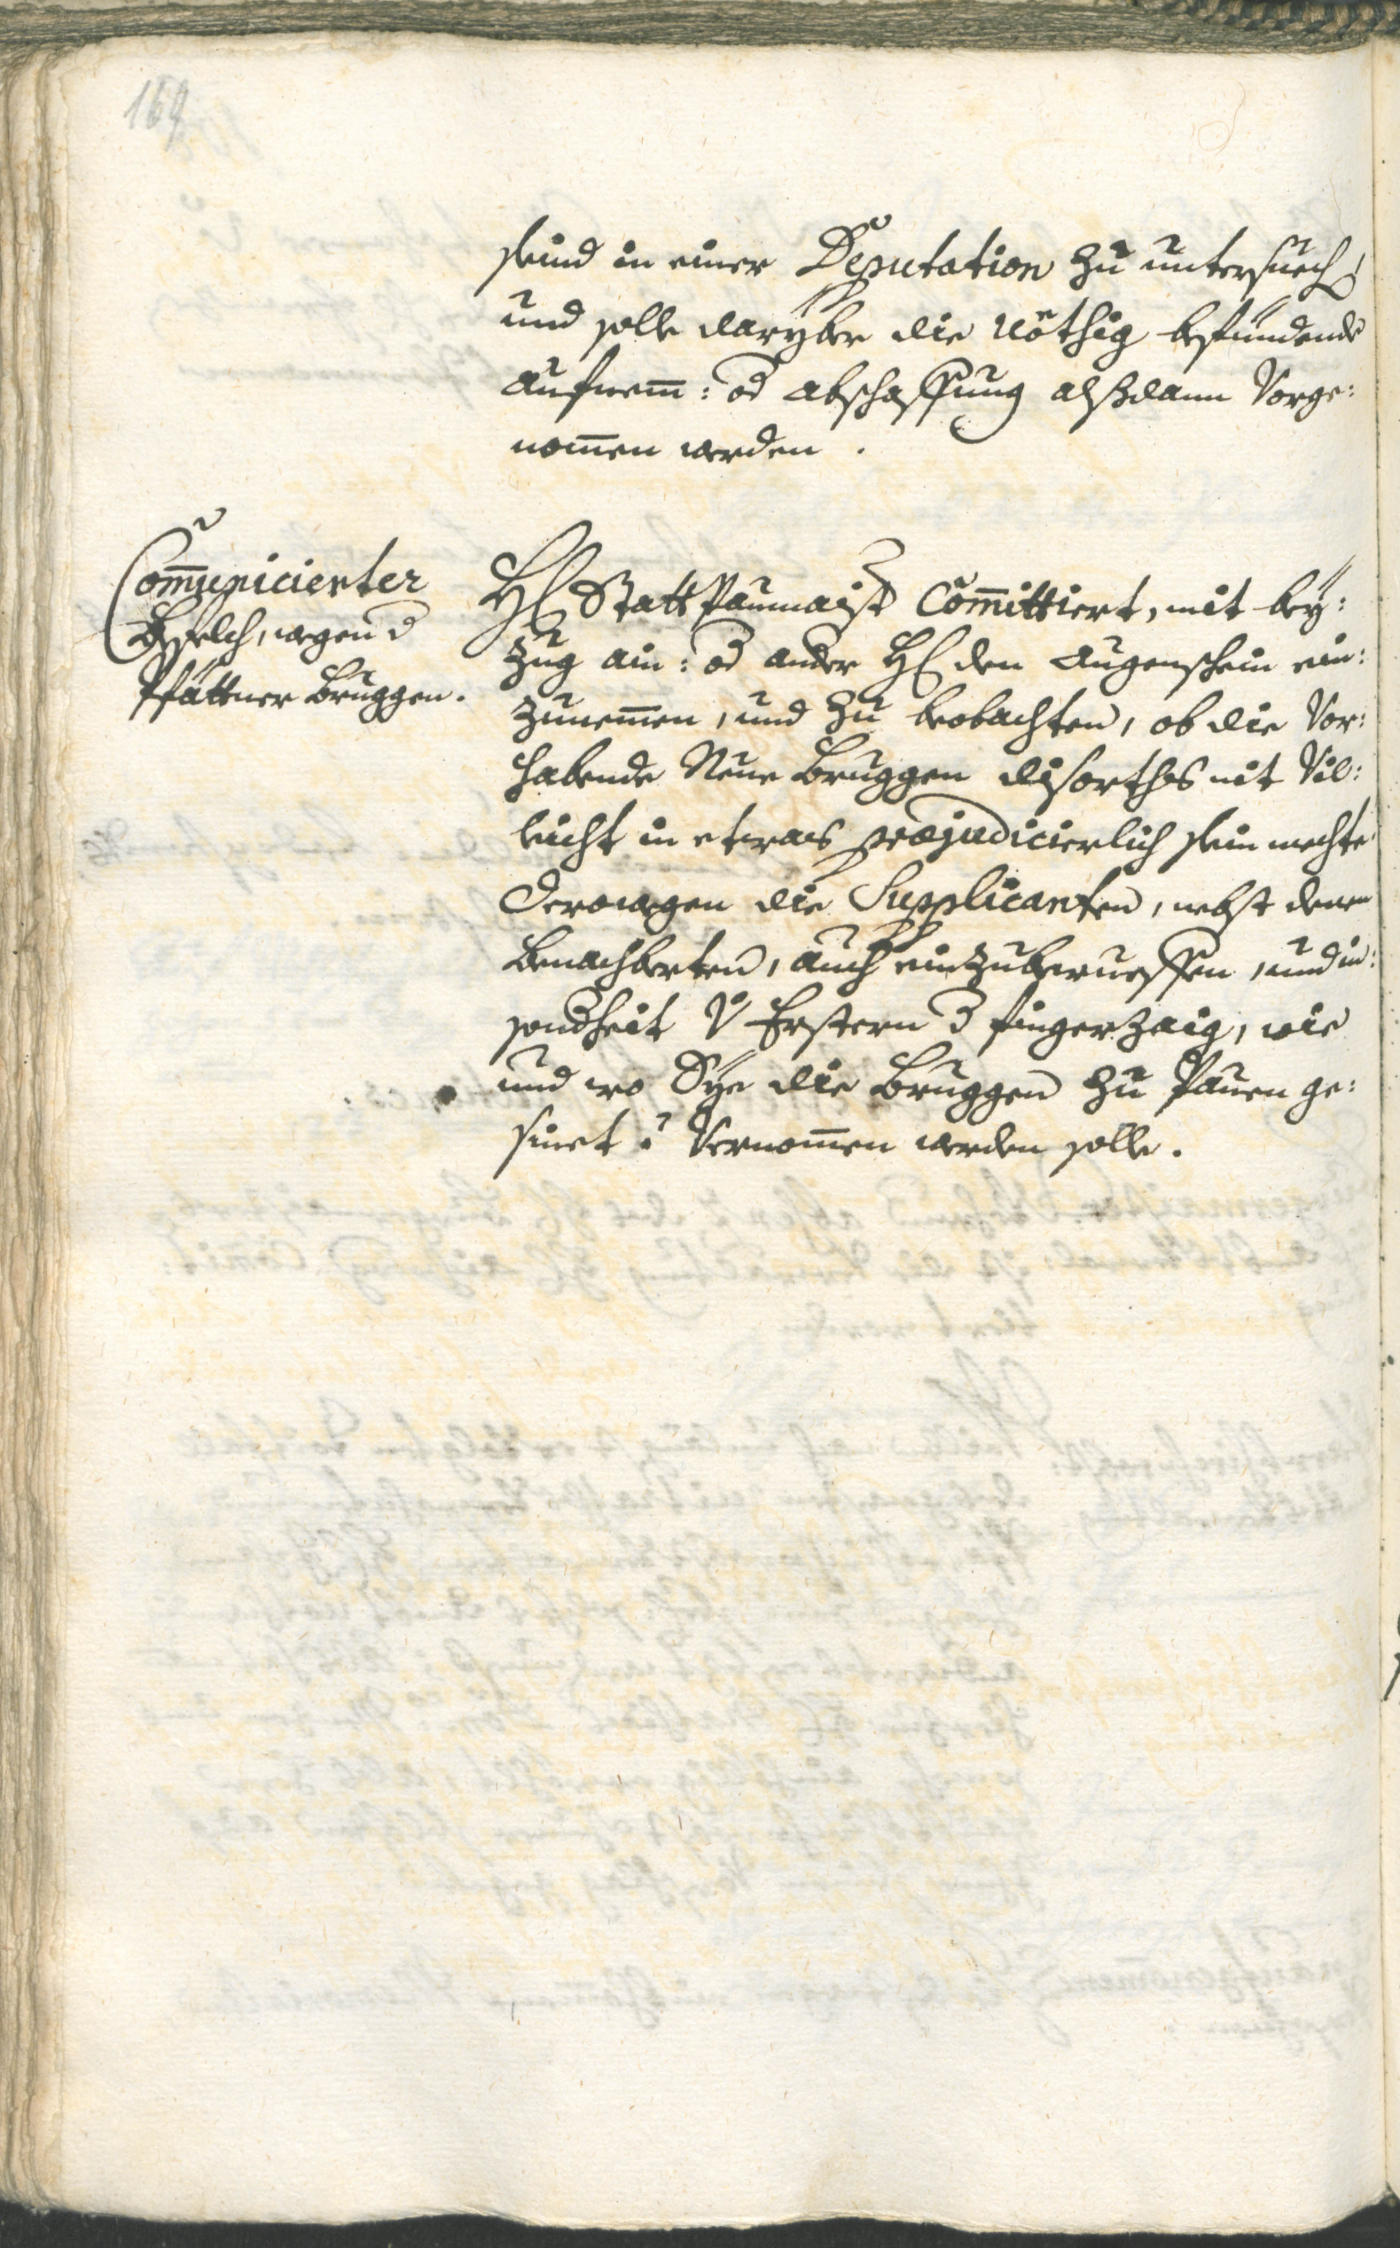 169
seind in einer Deputation zu untersuech,
und solle darÿber die nöthig befundende
aufnem̄: od abschaffung alßdann Vorge:
nom̄en werden.
Com̄unicierter
Befelch, wegen d
Pfättner Bruggen.
H Statt Paumaist Com̄ittiert, mit beÿ:
zug ain: od ander H den augenschein ein:
zunem̄en, und zu beobachten, ob die Vor:
habende Neue Bruggen diserthes nit Vil:
leicht in etwas præjudicierlich sein mechte
derowegen die Supplicanten, nebst denen
benachberten, auch einzuberueffen, und in:
sondheit V Erstern d fingerzaig, wie
und wo Sÿe die Bruggen zu Pauen ge:
sinet? Vernom̄en werden solle.